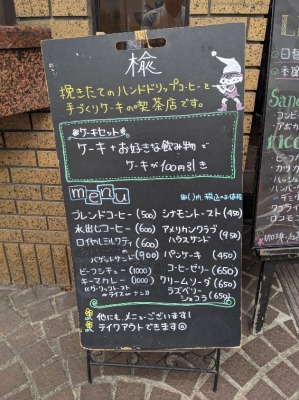 楡
挽きたてのハンドドリップコーヒーと
手づくりケーキの喫茶店です。
ケーキセット
ケーキ+お好きな飲み物で
ケーキが100円引き
menu
ブレンドコーヒー (500)
水出しコーヒー (600)
ロイヤルミルクティ (600)
バゲットサンド (900)
ビーフシチュー (1000)
キーマカレー (1000)
シナモントースト (450)
アメリカンクラブ
ハウスサンド (950)
パンケーキ (450)
コーヒーゼリー (650)
クリームソーダ (650)
ラズベリー
ショコラ (650)
他にも、メニューございます!
テイクアウトできます